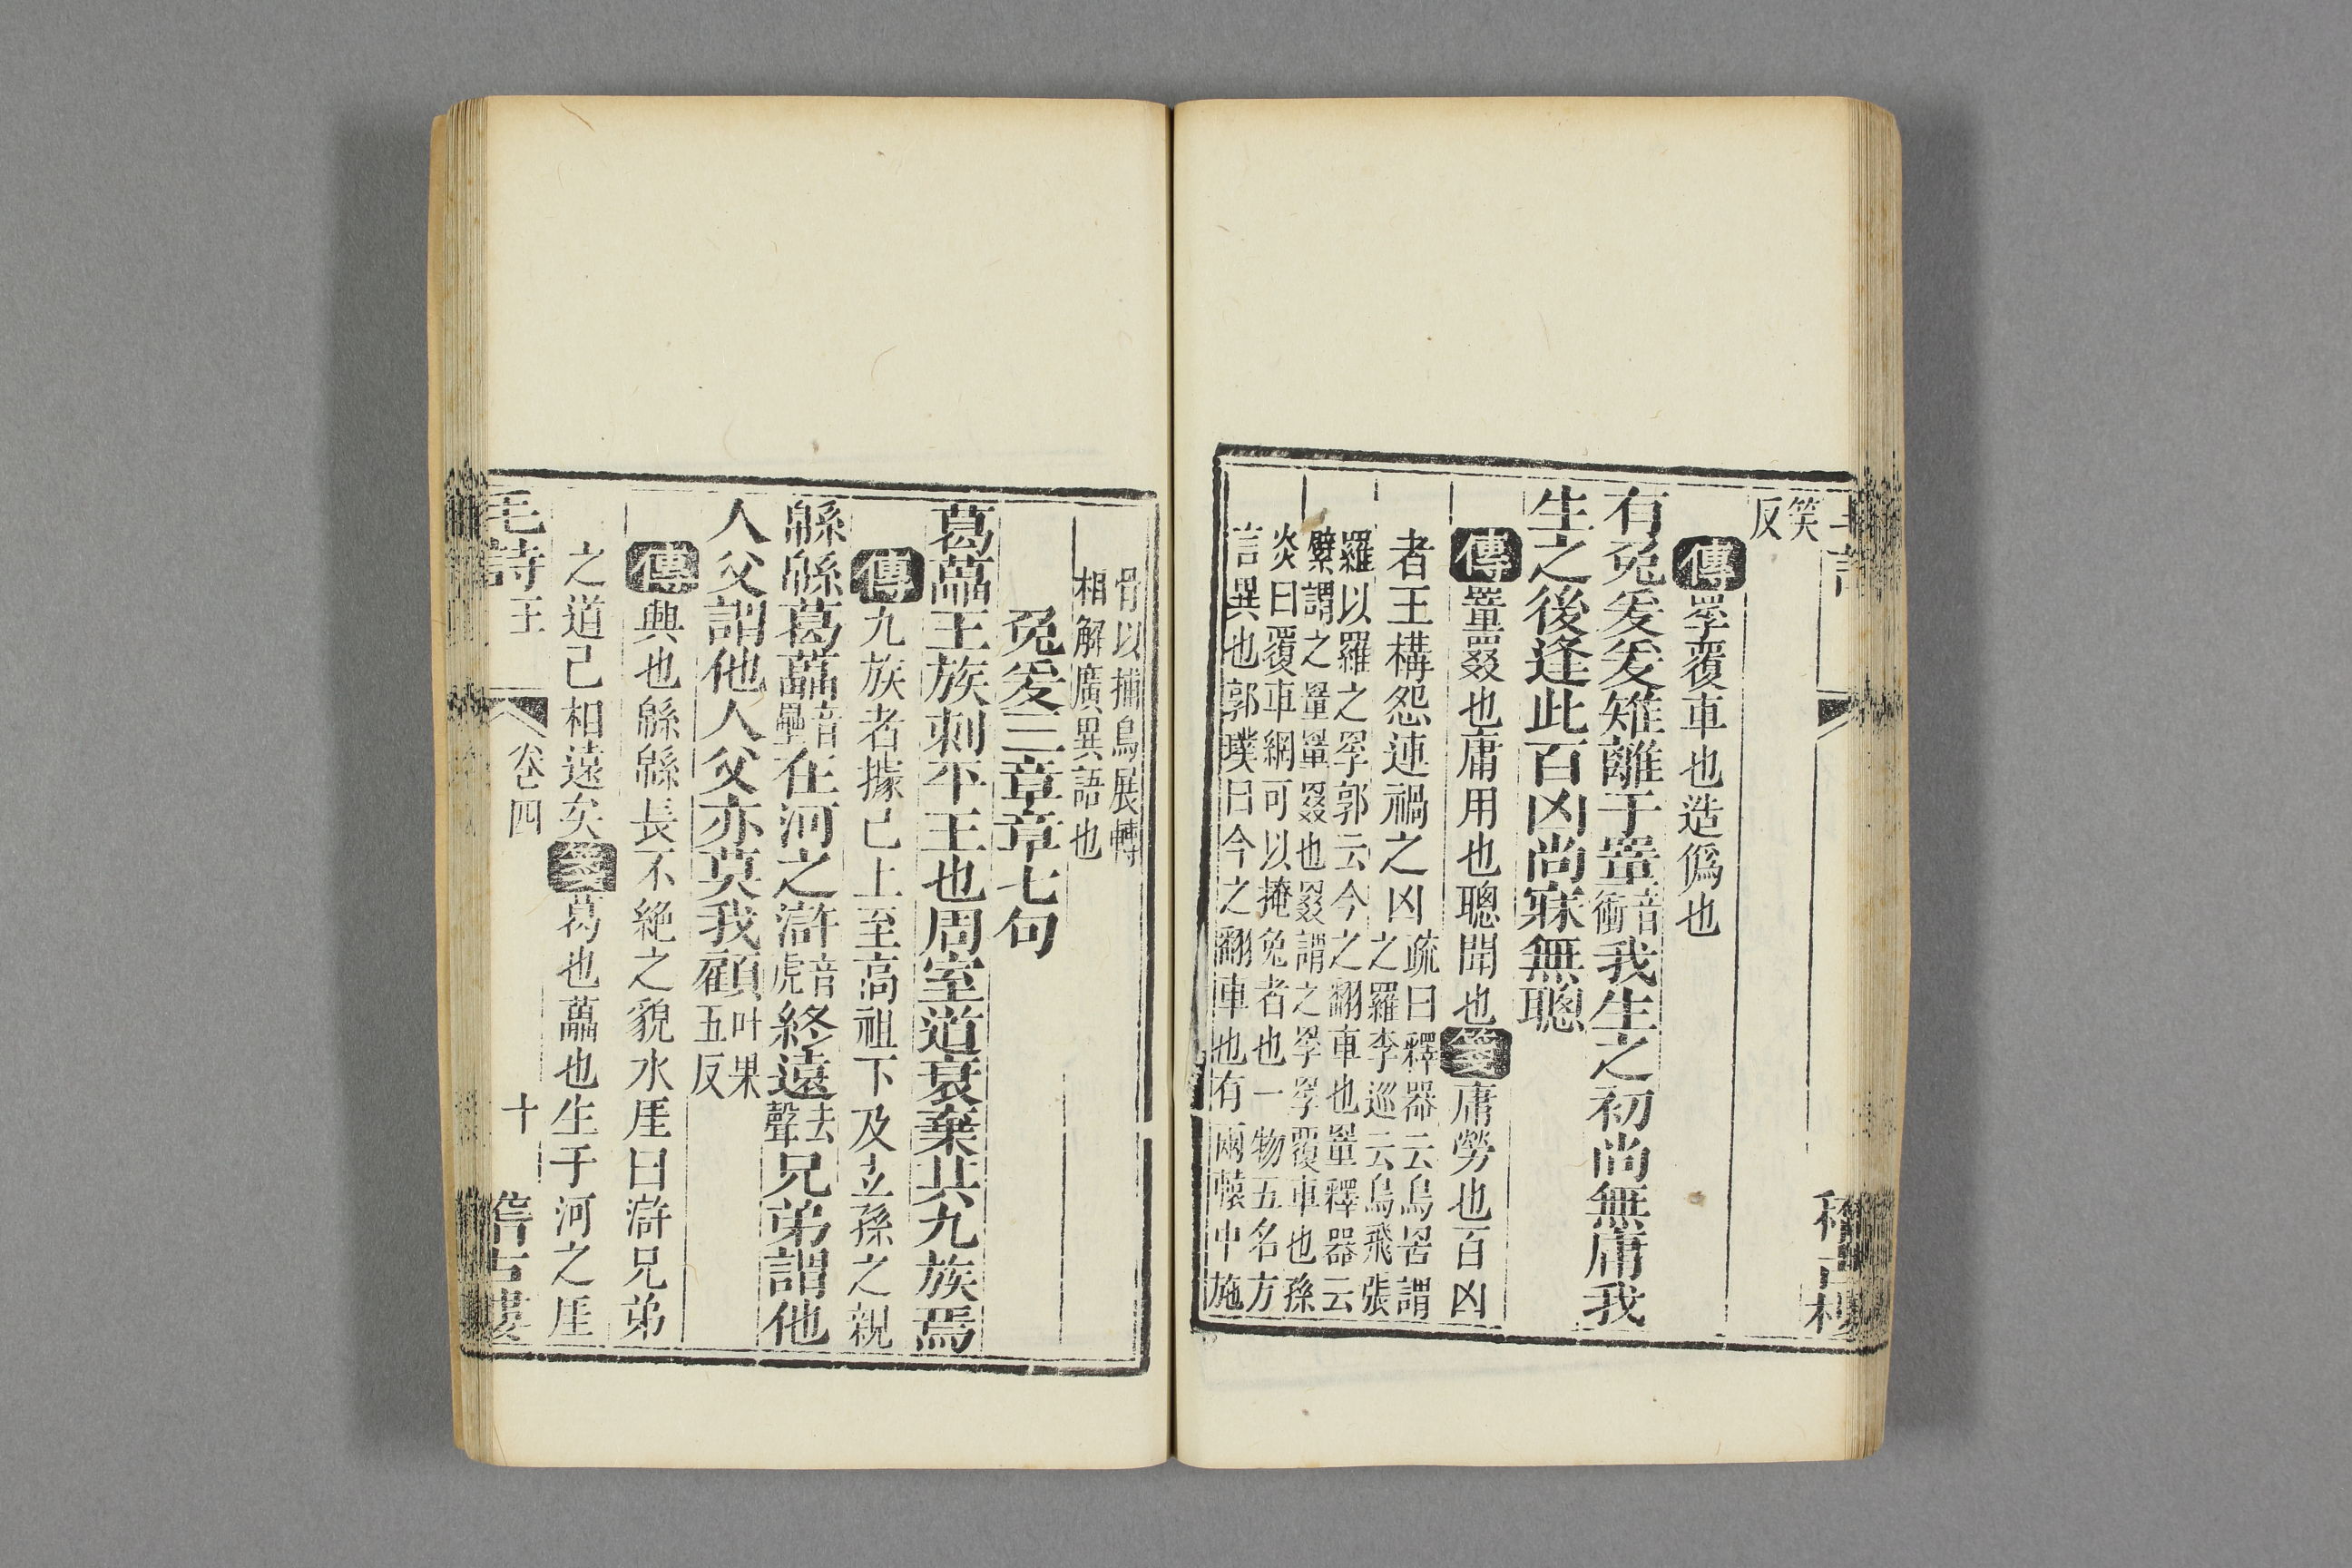 笑
反
傳罦覆車也造僞也
有兔爰爰雉離于罿音衝我生之初尚無庸我
生之後逢此百凶尚寐無聰
傳罿罬也庸用也聰聞也箋庸勞也百凶
者王構怨連禍之凶疏曰釋器云鳥罟謂
之羅李巡云鳥飛張
羅以羅之罦郭云今之翻車也罿釋器云
繴謂之罿罿罬也罬謂之罦罦覆車也孫
炎曰覆車網可以掩兔者也一物五名方
言異也郭璞曰今之翻車也有兩轅中施
稽古樓
骨以捕鳥展轉
相解廣異語也
兔爰三章章七句
葛藟王族刺平王也周室道衰棄其九族焉
傳九族者據己上至高祖下及玄孫之親
緜緜葛藟音壘在河之滸音虎終遠去聲兄弟謂他
人父謂他人父亦莫我顧叶果五反
傳興也緜緜長不絶之貌水厓曰滸兄弟
之道己相遠矣箋葛也藟也生于河之厓
毛詩 王 卷四 十 稽古樓